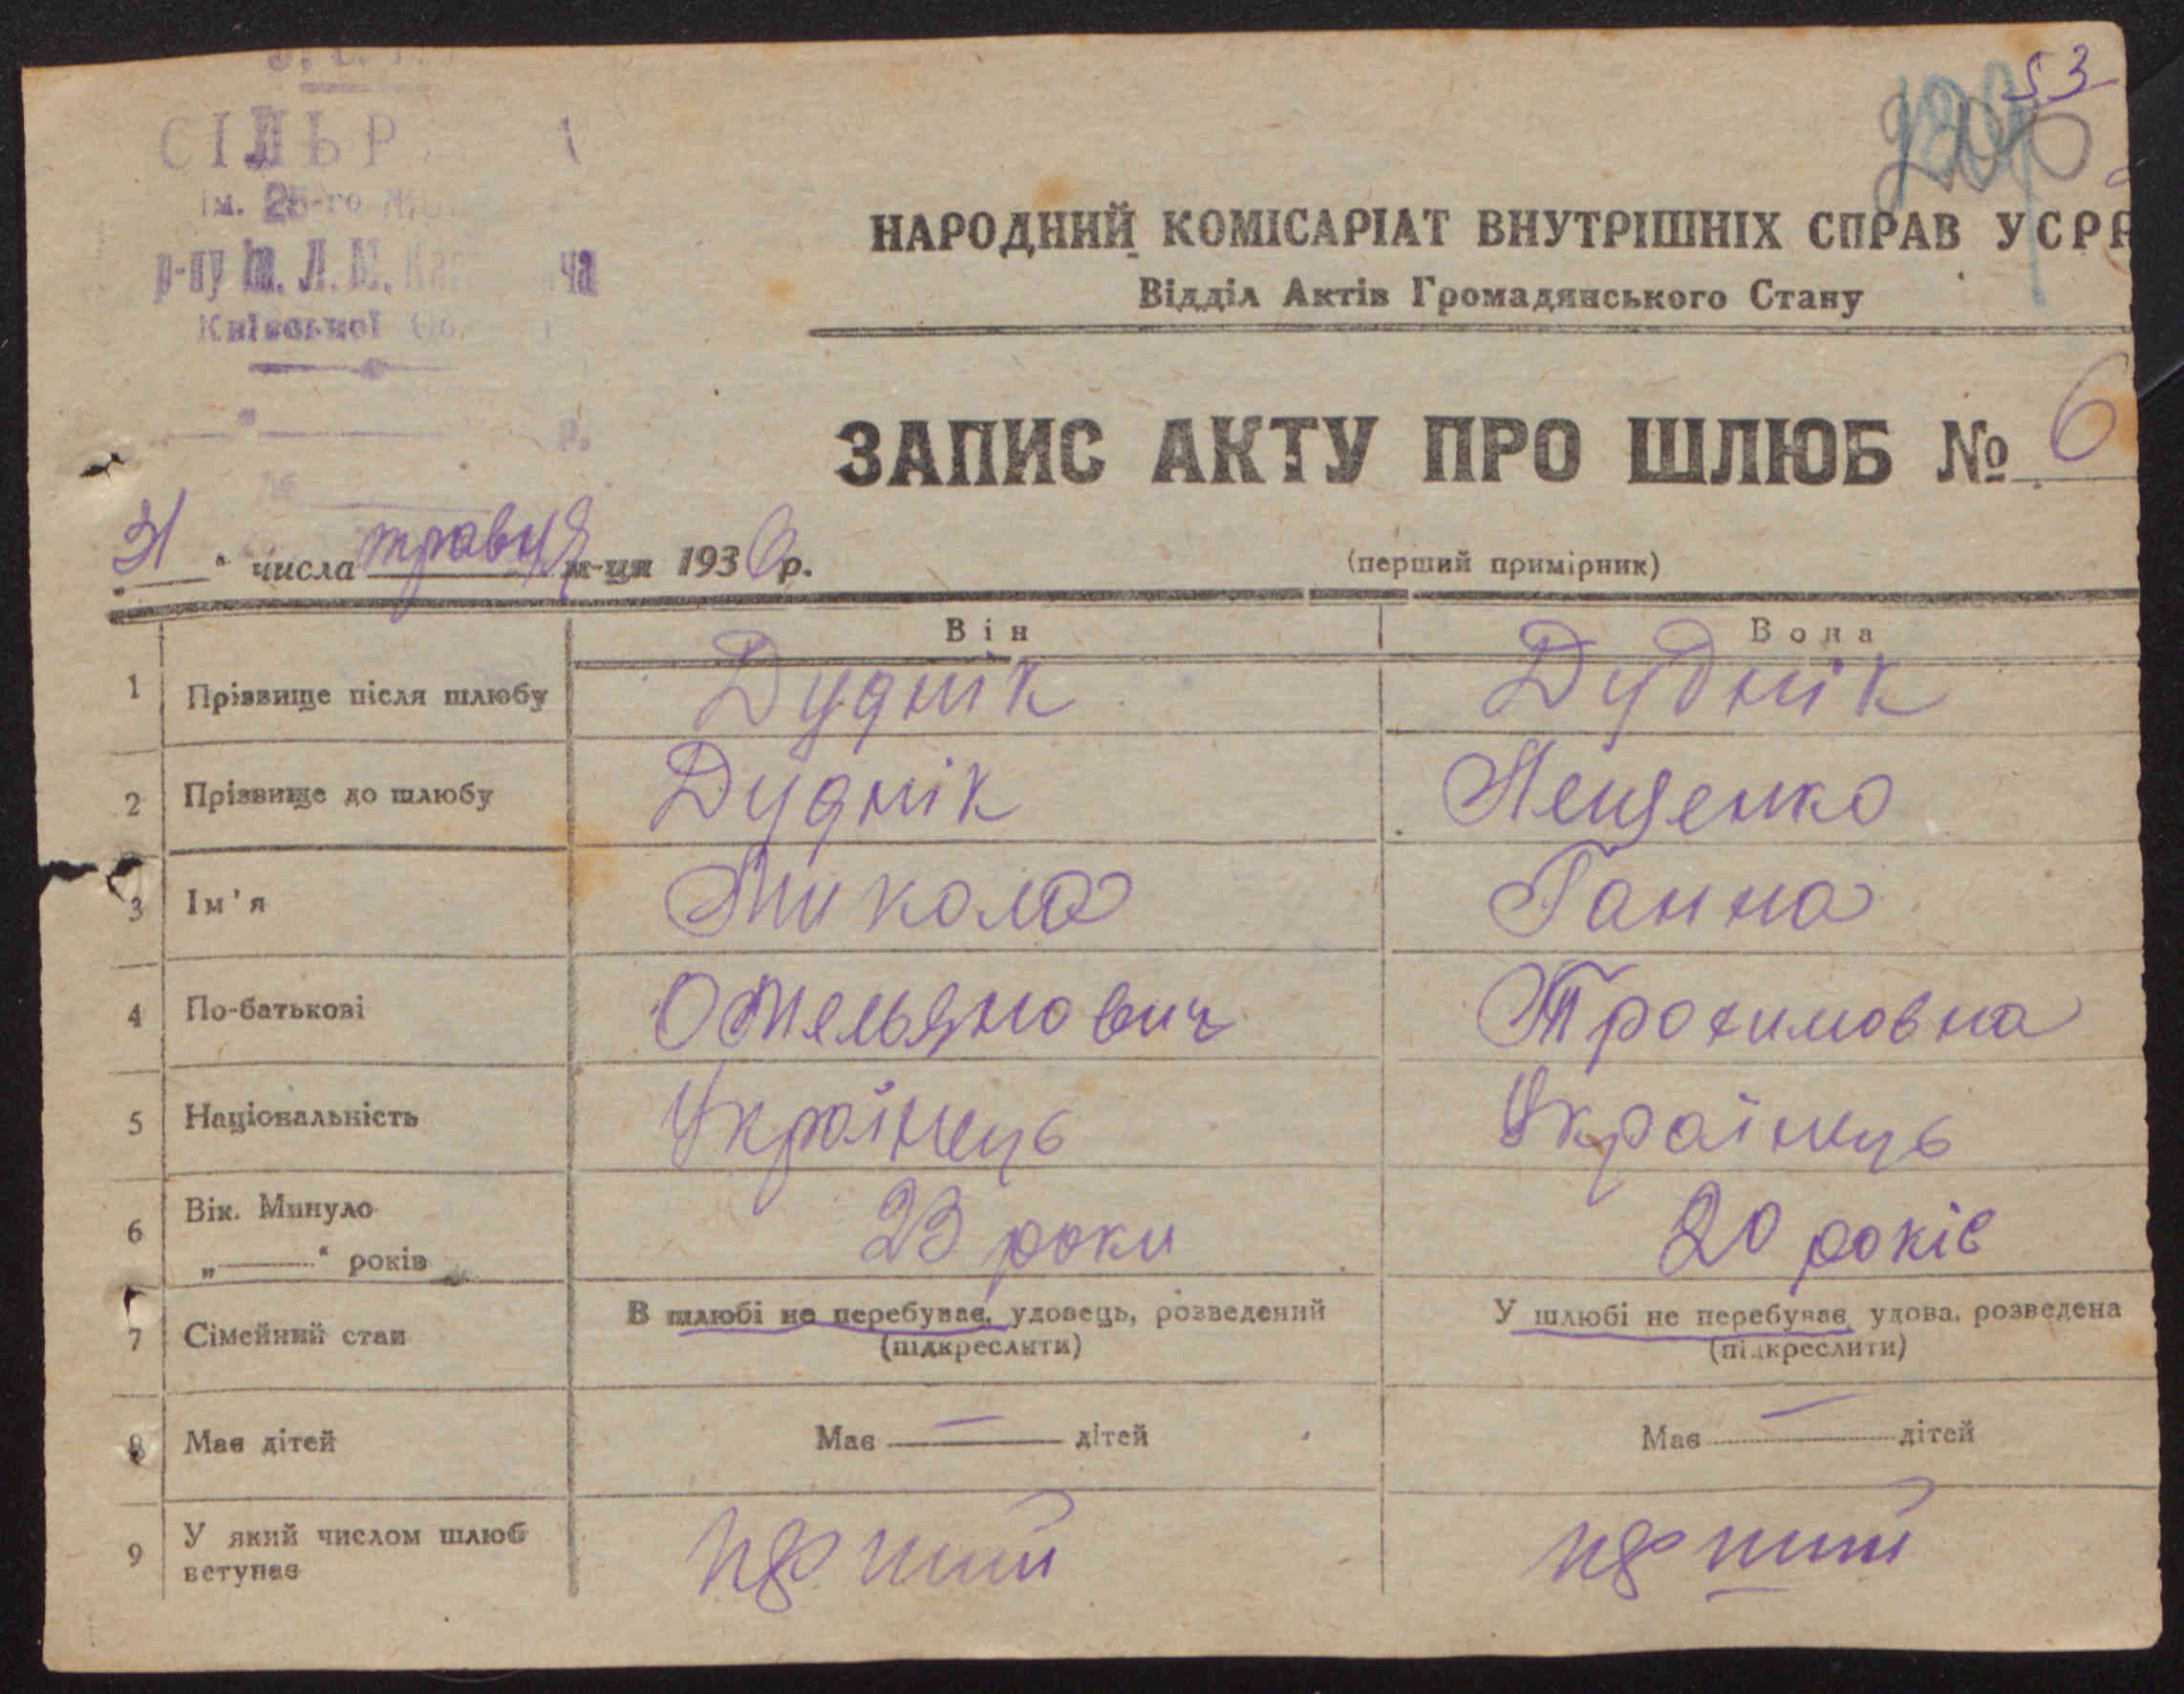 53
СІЛЬР
ім. 25-го
р-ну ім. Л. М.
Київської
р.
НАРОДНИЙ КОМІСАРІАТ ВНУТРІШНІХ СПРАВ УСРР
Відділ Актів Громадянського Стану
ЗАПИС АКТУ ПРО ШЛЮБ № 6
31 " числа травня м-ця 1936 р.
(перший примірник)
Він Вона
1 Прізвище після шлюбу Дуднік Дуднік
2 Прізвище до шлюбу Дуднік Лещенко
3 Ім'я Микола Ганна
4 По-батькові Омельянович Трохимовна
5 Національність Українець Українець
6 Вік. Минуло
„ “ років 23 роки 20 років
7 Сімейний стан В шлюбі не перебуває, удовець, розведений У шлюбі не перебуває, удова, розведена
(підкреслити) (підкреслити)
8 Має дітей Має — дітей Має — дітей
9 У який числом шлюб
вступає перший перший